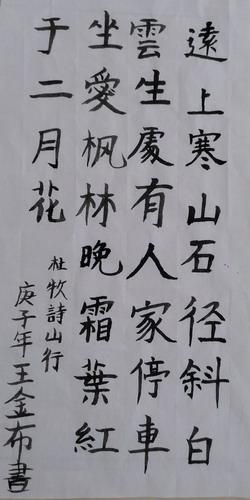 遠上寒山石径斜白
雲生處有人家停車
坐愛枫林晚霜葉紅
于二月花
杜牧詩山行
庚子年王金布書